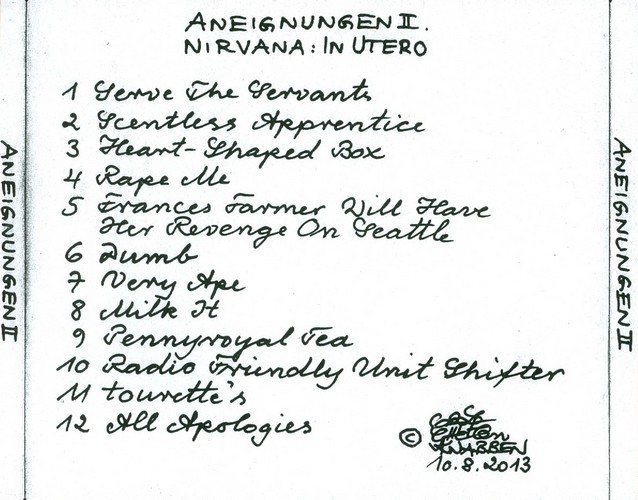 ANEIGNUNGEN II.
NIRVANA: IN UTERO
1 Serve The Servants
2 Scentless Apprentice
3 Heart-Shaped Box
4 Rape Me
5 Frances Farmer Will Have
Her Revenge On Seattle
6 Dumb
7 Very Ape
8 Milk It
9 Pennyroyal Tea
10 Radio Friendly Unit Shifter
11 tourette's
12 All Apologies
©
KNABBEN
10.8.2013
ANEIGNUNGEN II
ANEIGNUNGEN II